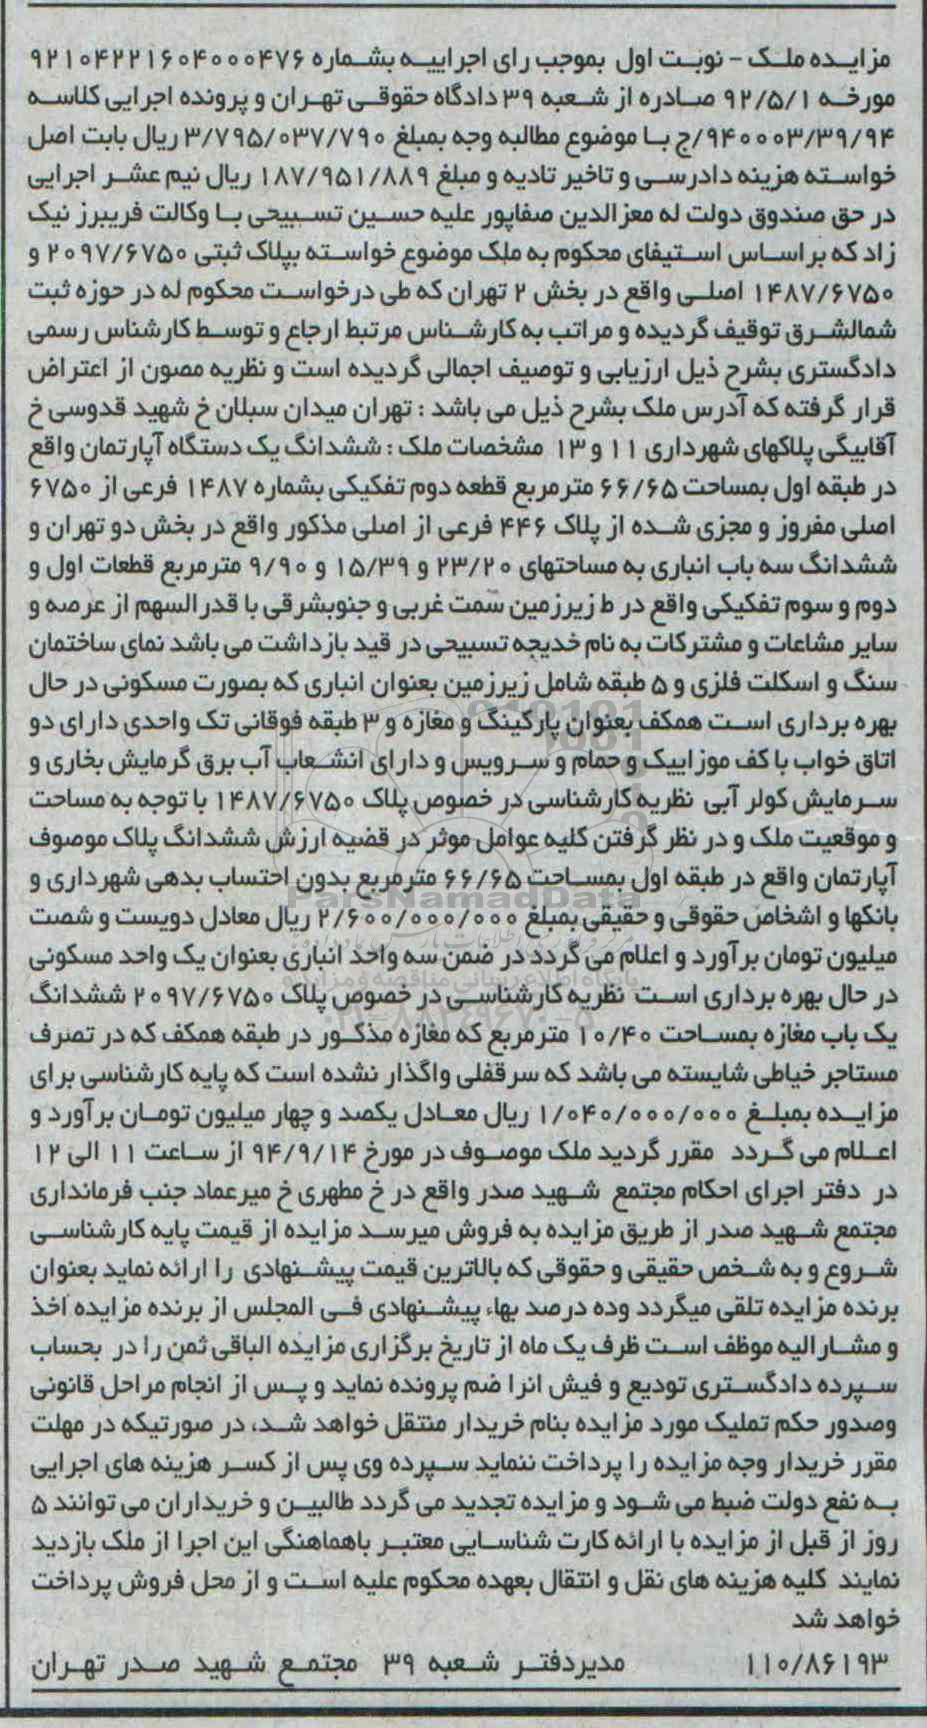 مزایده ملک - نوبت اول بموجب رای اجراییه بشماره ۹۲۱۰۴۲۲۱۶۰۴۰۰۰۴۷۶
مورخه ۹۲/۵/۱ صادره از شعبه ۳۹ دادگاه حقوقی تهران و پرونده اجرایی کلاسه
۹۴۰۰۰۳/۳۹/۹۴/ج با موضوع مطالبه وجه بمبلغ ۳/۷۹۵/۰۳۷/۷۹۰ ریال بابت اصل
خواسته هزینه دادرسی و تاخیر تادیه و مبلغ ۱۸۷/۹۵۱/۸۸۹ ریال نیم عشر اجرایی
در حق صندوق دولت له معزالدین صفاپور علیه حسین تسبیحی با وکالت فریبرز نیک
زاد که براساس استیفای محکوم به ملک موضوع خواسته بپلاک ثبتی ۲۰۹۷/۶۷۵۰ و
۱۴۸۷/۶۷۵۰ اصلی واقع در بخش ۲ تهران که طی درخواست محکوم له در حوزه ثبت
شمالشرق توقیف گردیده و مراتب به کارشناس مرتبط ارجاع و توسط کارشناس رسمی
دادگستری بشرح ذیل ارزیابی و توصیف اجمالی گردیده است و نظریه مصون از اعتراض
قرار گرفته که آدرس ملک بشرح ذیل می باشد : تهران میدان سبلان خ شهید قدوسی خ
آقابیگی پلاکهای شهرداری ۱۱ و ۱۳ مشخصات ملک : ششدانگ یک دستگاه آپارتمان واقع
در طبقه اول بمساحت ۶۶/۶۵ مترمربع قطعه دوم تفکیکی بشماره ۱۴۸۷ فرعی از ۶۷۵۰
اصلی مفروز و مجزی شده از پلاک ۴۴۶ فرعی از اصلی مذکور واقع در بخش دو تهران و
ششدانگ سه باب انباری به مساحتهای ۲۳/۲۰ و ۱۵/۳۹ و ۹/۹۰ مترمربع قطعات اول و
دوم و سوم تفکیکی واقع در ط زیرزمین سمت غربی و جنوبشرقی با قدرالسهم از عرصه و
سایر مشاعات و مشترکات به نام خدیجه تسبیحی در قید بازداشت می باشد نمای ساختمان
سنگ و اسکلت فلزی و ۵ طبقه شامل زیرزمین بعنوان انباری که بصورت مسکونی در حال
بهره برداری است همکف بعنوان پارکینگ و مغازه و ۳ طبقه فوقانی تک واحدی دارای دو
اتاق خواب با کف موزاییک و حمام و سرویس و دارای انشعاب آب برق گرمایش بخاری و
سرمایش کولر آبی نظریه کارشناسی در خصوص پلاک ۱۴۸۷/۶۷۵۰ با توجه به مساحت
و موقعیت ملک و در نظر گرفتن کلیه عوامل موثر در قضیه ارزش ششدانگ پلاک موصوف
آپارتمان واقع در طبقه اول بمساحت ۶۶/۶۵ مترمربع بدون احتساب بدهی شهرداری و
ParsNamadData
بانکها و اشخاص حقوقی و حقیقی بمبلغ ۲/۶۰۰/۰۰۰/۰۰۰ ریال معادل دویست و شصت
میلیون تومان برآورد و اعلام می گردد در ضمن سه واحد انباری بعنوان یک واحد مسکونی
در حال بهره برداری است نظریه کارشناسی در خصوص پلاک ۲۰۹۷/۶۷۵۰ ششدانگ
یک باب مغازه بمساحت ۱۰/۴۰ مترمربع که مغازه مذکور در طبقه همکف که در تصرف
مستاجر خیاطی شایسته می باشد که سرقفلی واگذار نشده است که پایه کارشناسی برای
مزایده بمبلغ ۱/۰۴۰/۰۰۰/۰۰۰ ریال معادل یکصد و چهار میلیون تومان برآورد و
اعلام می گردد مقرر گردید ملک موصوف در مورخ ۹۴/۹/۱۴ از ساعت ۱۱ الی ۱۲
در دفتر اجرای احکام مجتمع شهید صدر واقع در خ مطهری خ میرعماد جنب فرمانداری
مجتمع شهید صدر از طریق مزایده به فروش میرسد مزایده از قیمت پایه کارشناسی
شروع و به شخص حقیقی و حقوقی که بالاترین قیمت پیشنهادی را ارائه نماید بعنوان
برنده مزایده تلقی میگردد وده درصد بهاء پیشنهادی فی المجلس از برنده مزایده اخذ
و مشارالیه موظف است ظرف یک ماه از تاریخ برگزاری مزایده الباقی ثمن را در بحساب
سپرده دادگستری تودیع و فیش انرا ضم پرونده نماید و پس از انجام مراحل قانونی
وصدور حکم تملیک مورد مزایده بنام خریدار منتقل خواهد شد، در صورتیکه در مهلت
مقرر خریدار وجه مزایده را پرداخت ننماید سپرده وی پس از کسر هزینه های اجرایی
به نفع دولت ضبط می شود و مزایده تجدید می گردد طالبین و خریداران می توانند ۵
روز از قبل از مزایده با ارائه کارت شناسایی معتبر باهماهنگی این اجرا از ملک بازدید
نمایند کلیه هزینه های نقل و انتقال بعهده محکوم علیه است و از محل فروش پرداخت
خواهد شد
۱۱۰/۸۶۱۹۳ مدیردفتر شعبه ۳۹ مجتمع شهید صدر تهران